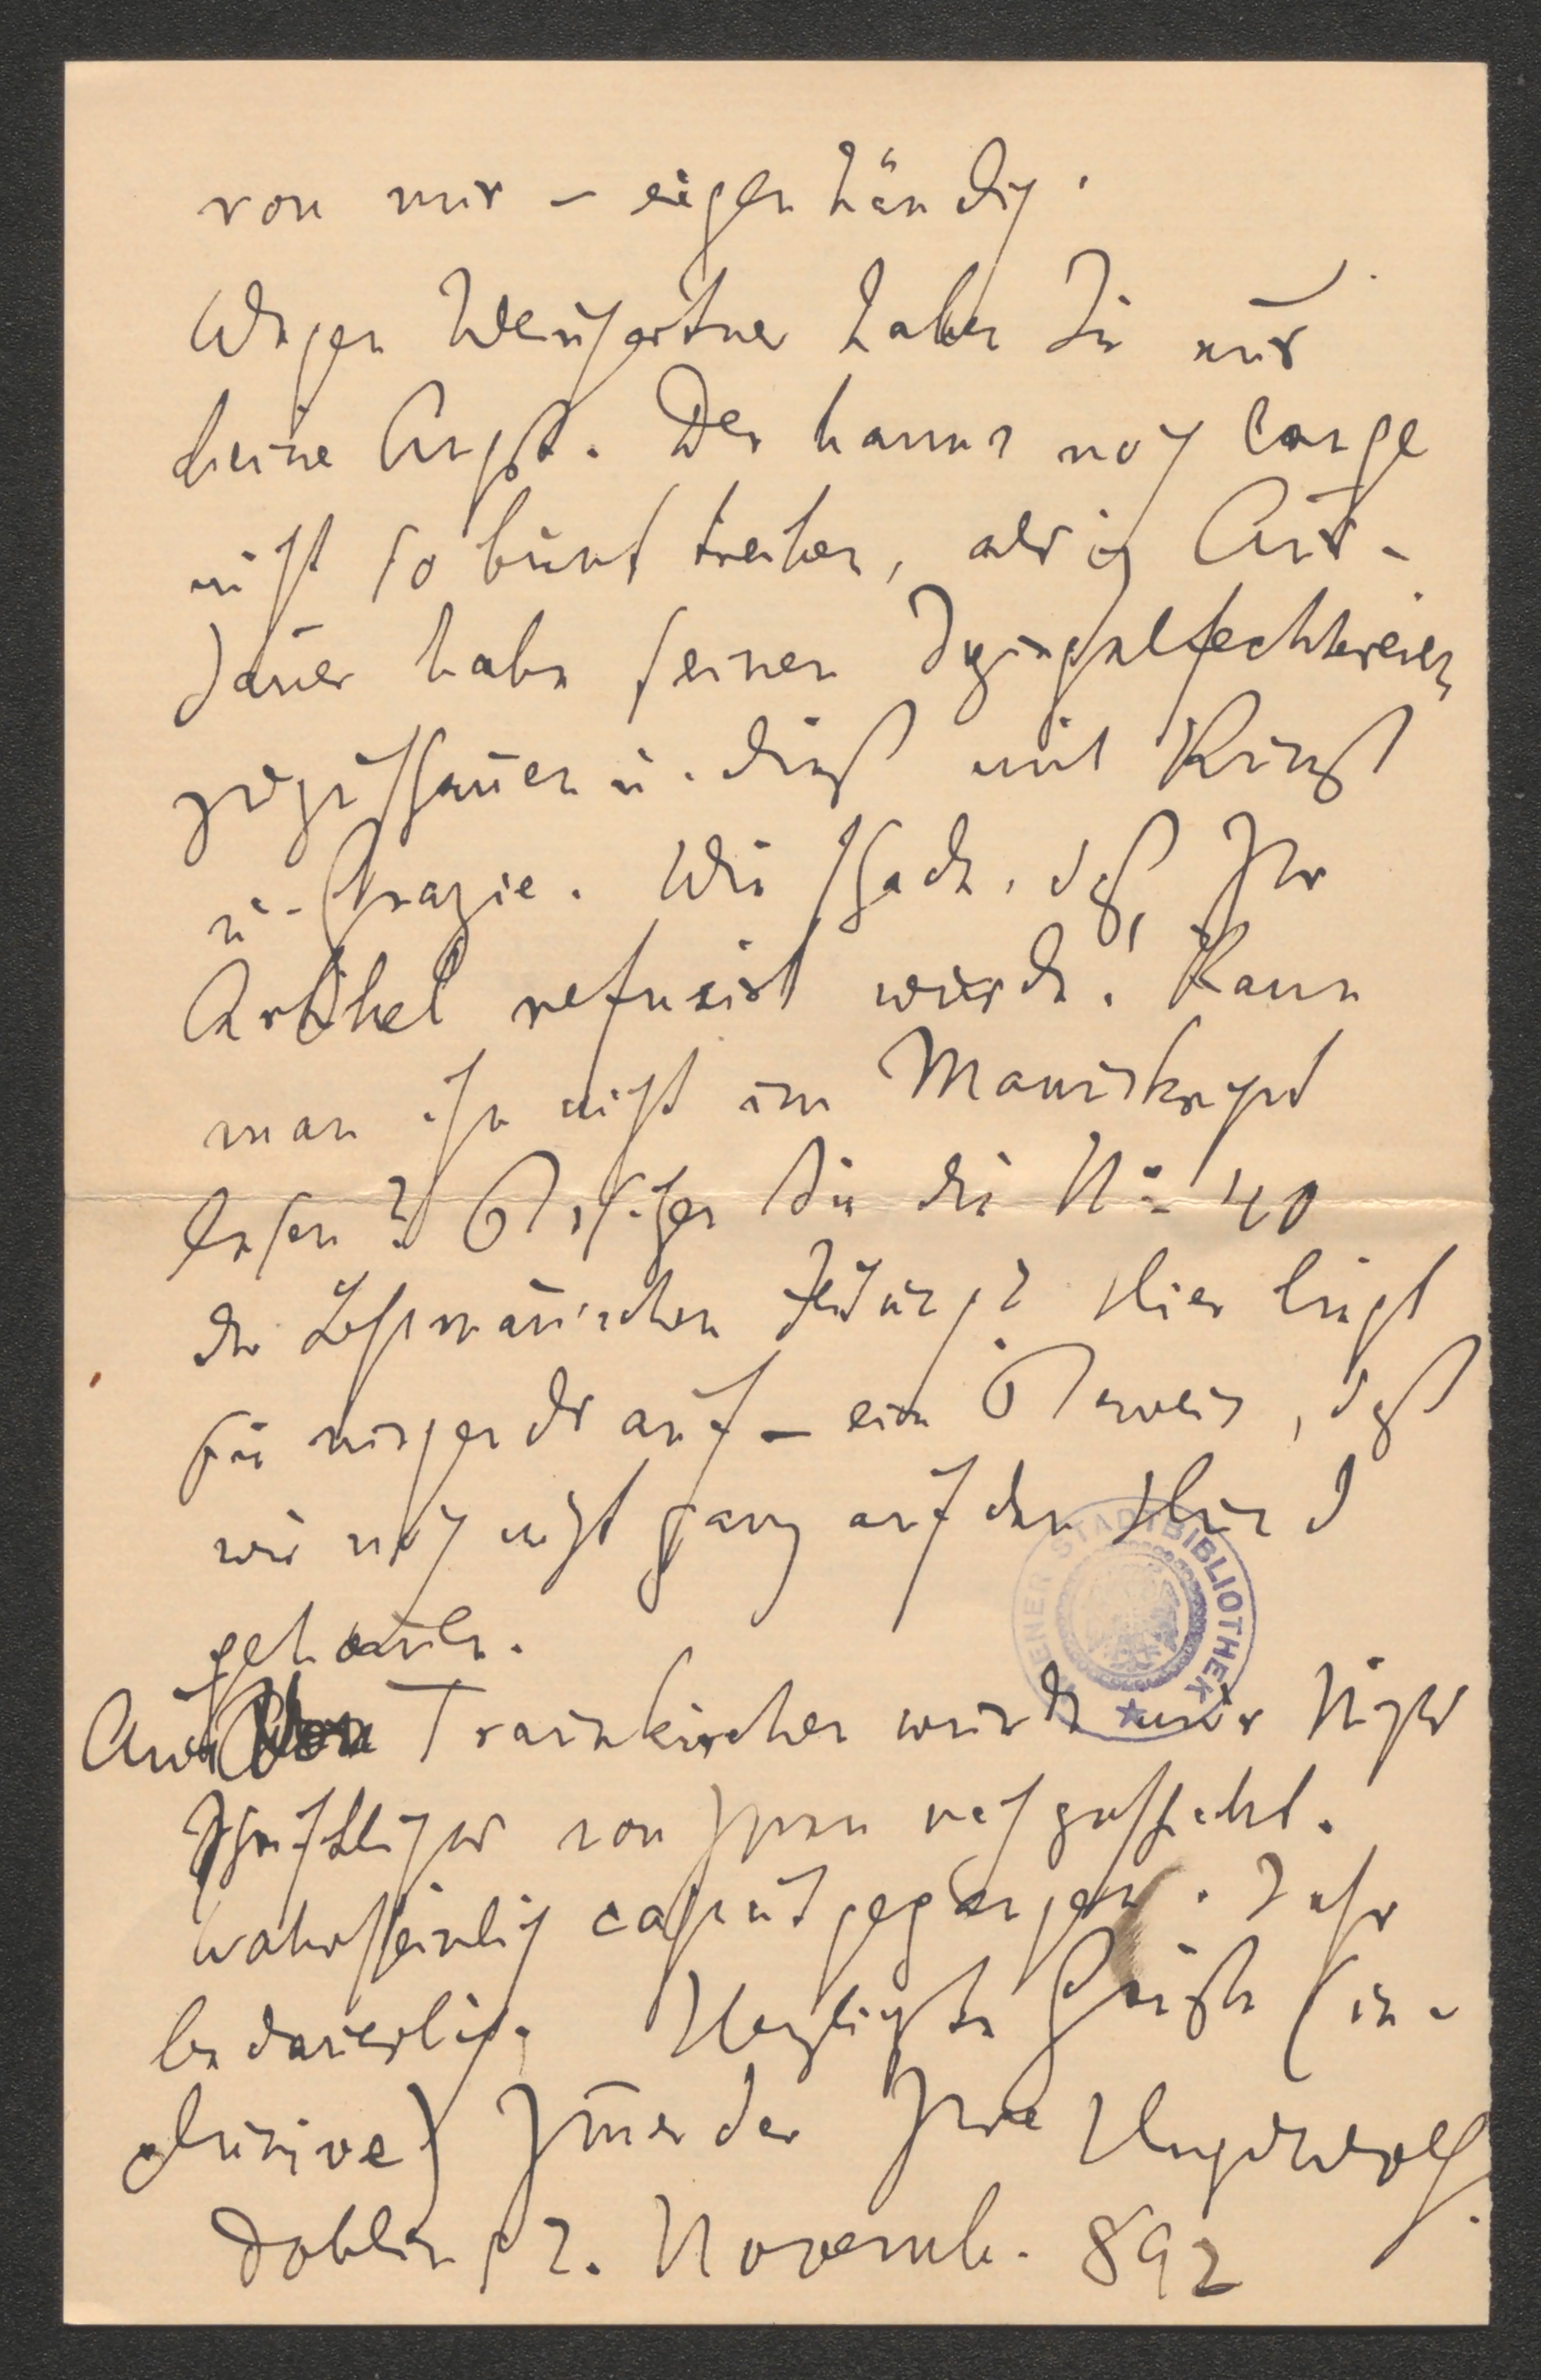 von mir – eigenhändig.
Wegen Weingartner haben Sie nur
keine Angst. Der kann's noch lange
nicht so bunt treiben, als ich Aus-
dauer habe seinen Spiegelfechtereien
zuzuschauen u. dies mit Kunst
u. Grazie. Wie schade, daß Ihr
Artikel refusirt wurde! Kann
man ihn nicht im Manuskript
lesen? Besitzen Sie die No 40
der Leßmann'schen Zeitung? Hier liegt
sie nirgends auf – ein Beweis, daß
wir noch nicht ganz auf den Hund
gekommen.
Aus Traunkirchen wurde mir Nichts
Schriftliches von Ihnen nachgeschickt.
Wahrscheinlich caput gegangen. Sehr
bedauerlich. Herzlichste Grüße (in-
clusive) Immer der Ihre Hugo Wolf.
Döbling 2. Novemb. 892
WIENER STADTBIBLIOTHEK